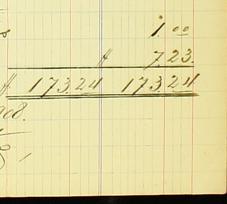 1.00
7.23.
173.24 173.24
908.